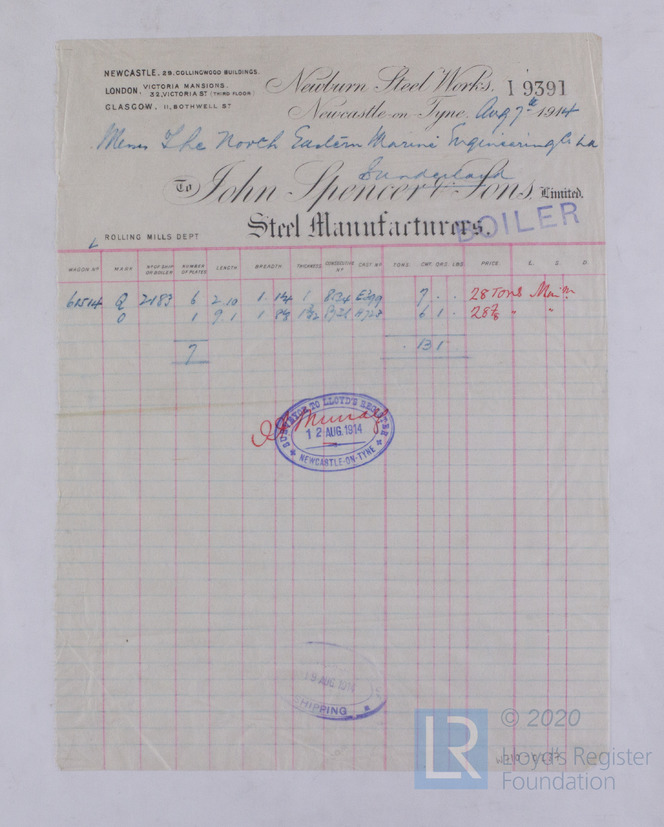 NEWCASTLE. 29. COLLINGWOOD BUILDINGS.
LONDON. VICTORIA MANSIONS. 32, VICTORIA ST (THIRD FLOOR)
GLASGOW. 11, BOTHWELL ST
Newburn Steel Works. I 9391
Newcastle-on-Tyne, Aug 7th 1914
Messrs The North Eastern Marine Engineering Co Ltd
Sunderland
To John Spencer & Sons, Limited.
Steel Manufacturers.
BOILER
ROLLING MILLS DEPT
WAGON No MARK No OF SHIP OR BOILER NUMBER OF PLATES LENGTH BREADTH THICKNESS CONSECUTIVE No CAST No TONS. CWT. QRS. LBS. PRICE. £. S. D.
Q 2183 6 2 10 1 1 7 . . 28 Tons
O 1 9 1 1 6 1 .
7 . 13 1 .
SURVEYOR TO LLOYD'S REGISTER
12 AUG. 1914
NEWCASTLE-ON-TYNE
19 AUG 1914
SHIPPING
LR
© 2020
Lloyd's Register
Foundation